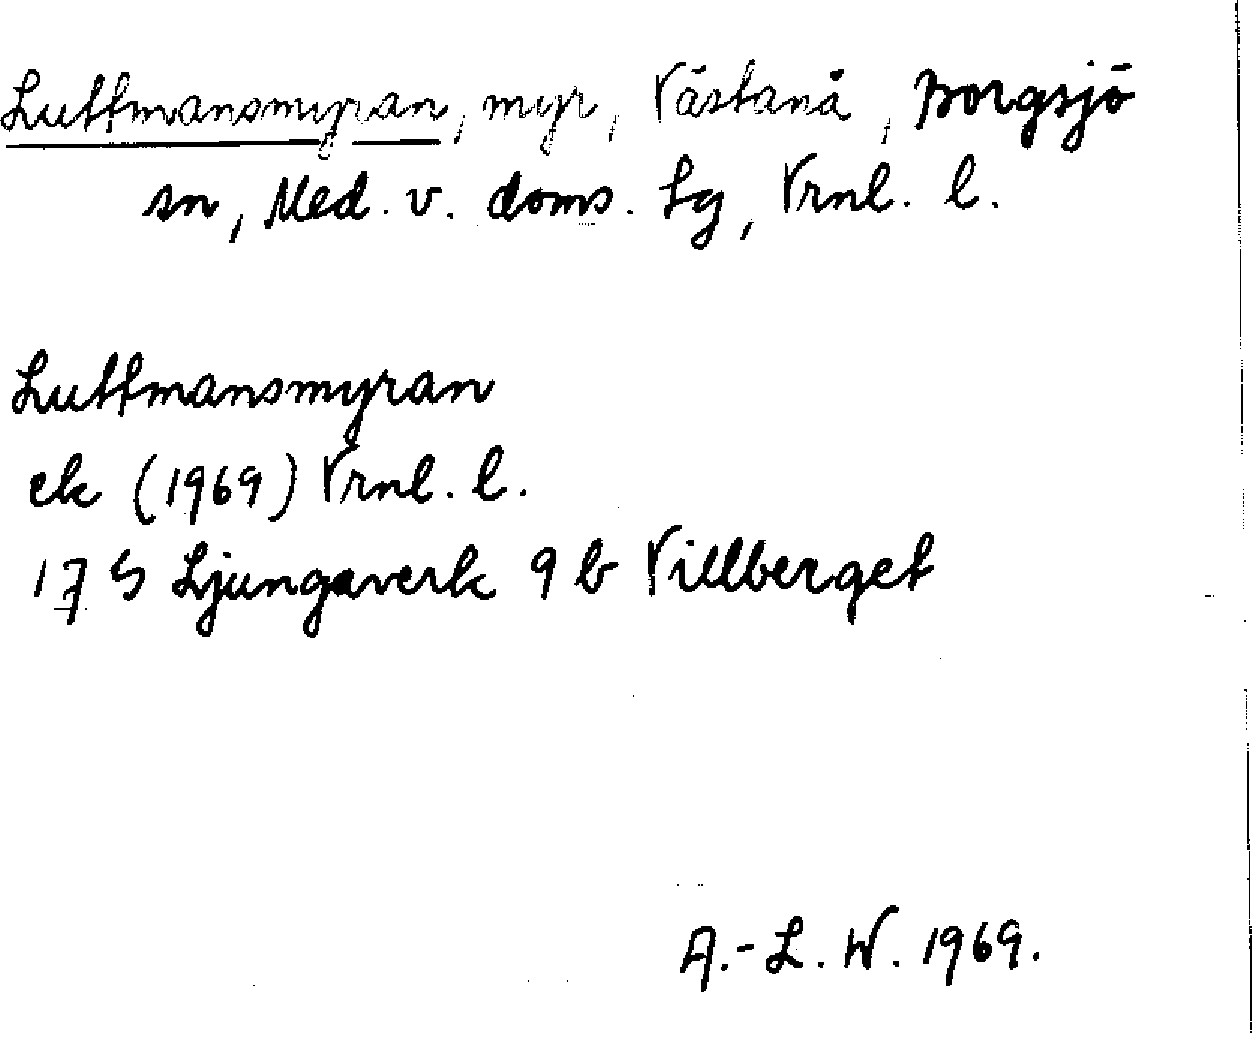 Luttmansmyran, myr, Västanå, Borgsjö
sn, Med. v. doms. lg, Vrnl. l.
Luttmansmyran
ek (1969) Vrnl. l.
17 G Ljungaverk 9 b Villberget
A.-L. W. 1969.